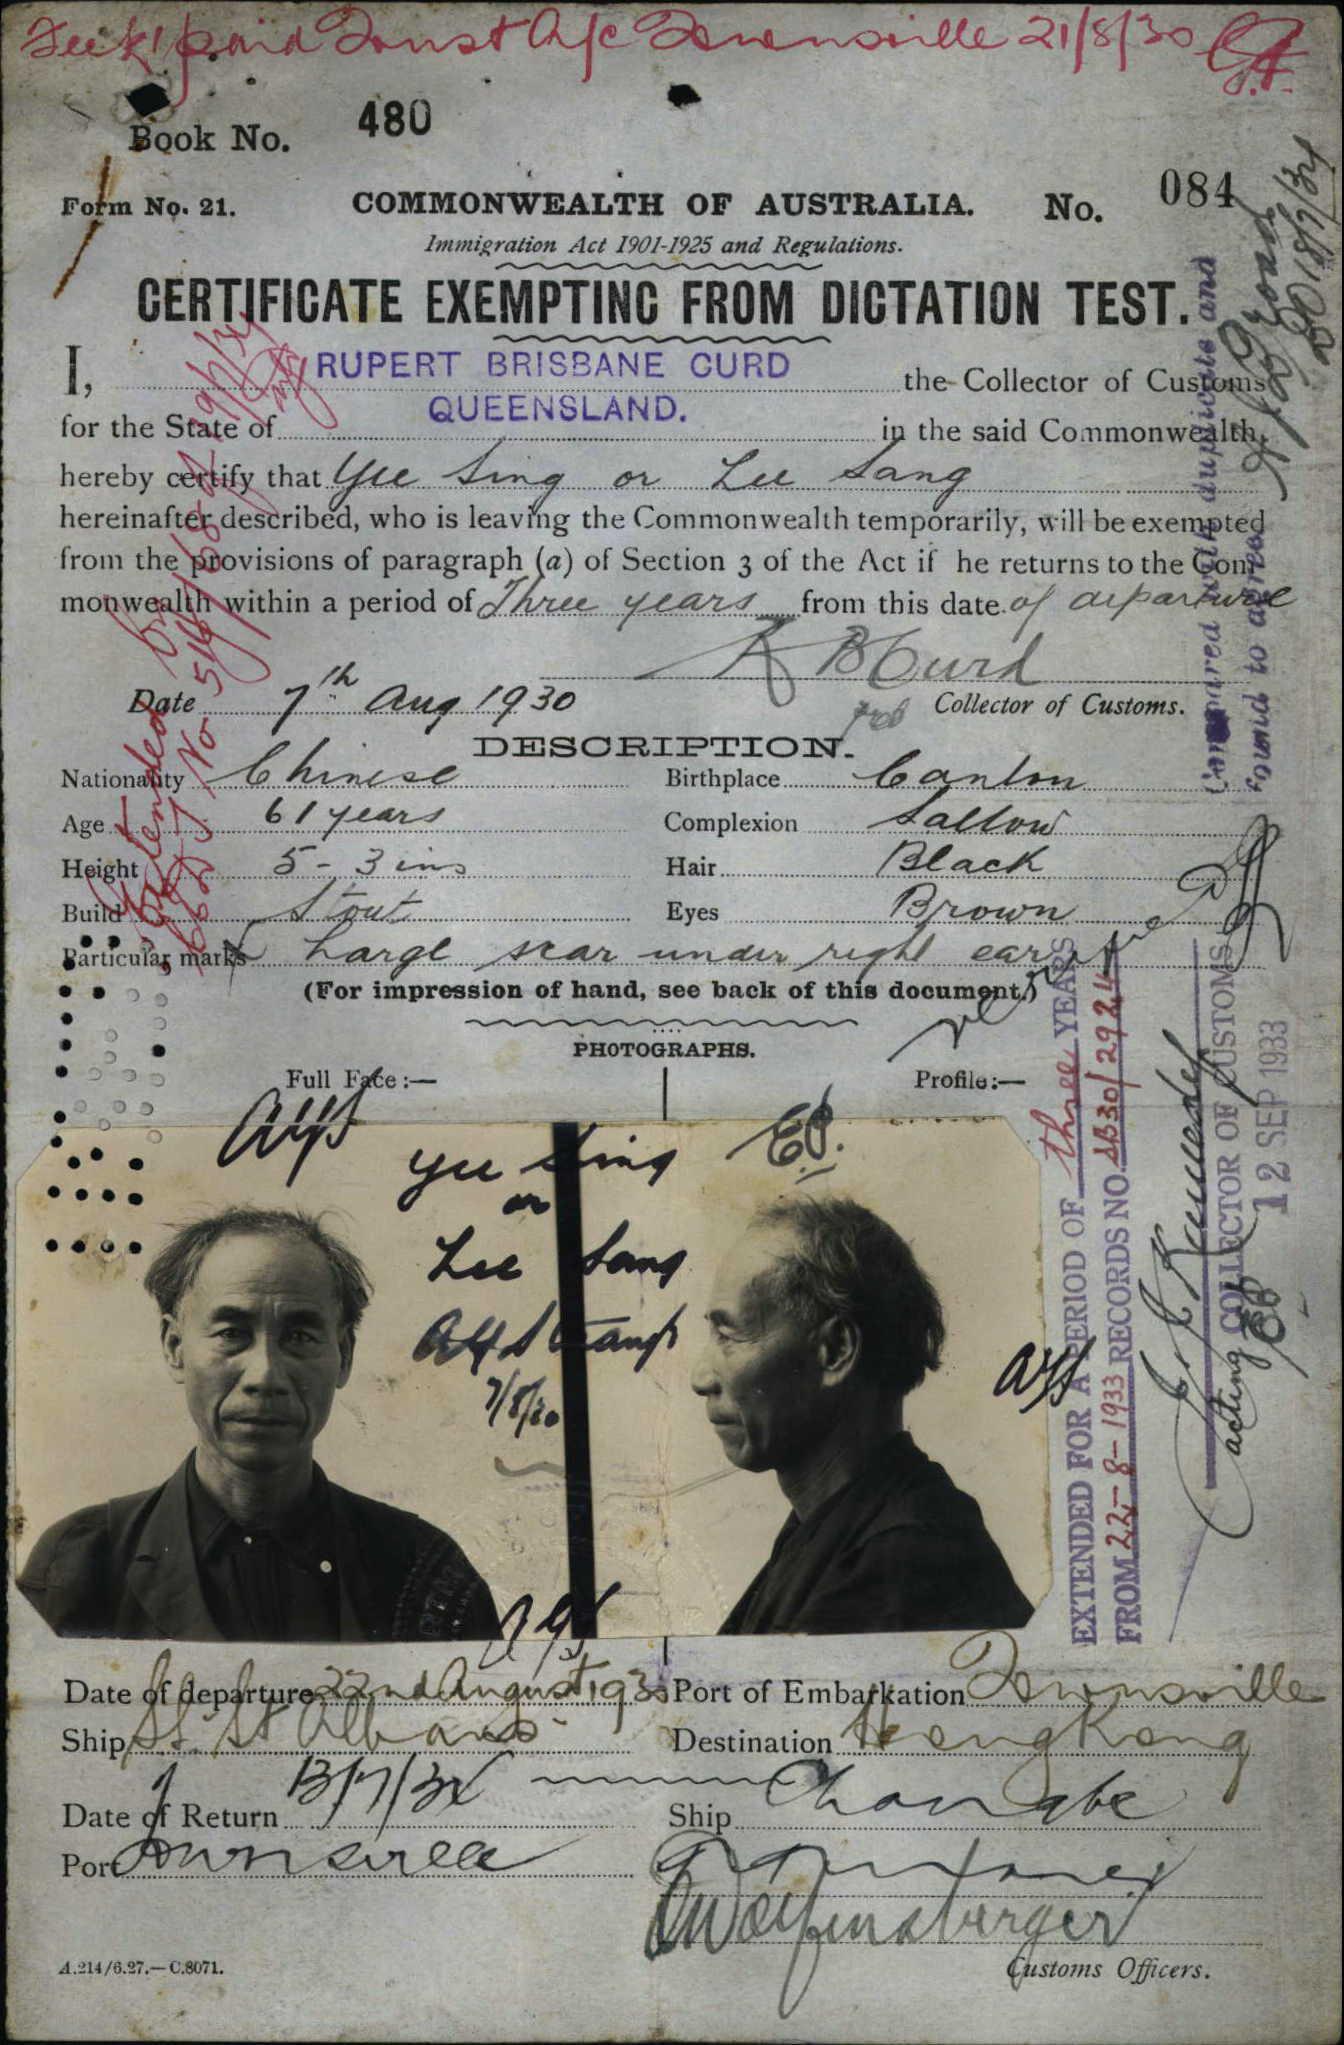 Fee £1 paid Const A/c Townsville 21/8/30
Book No. 480
Form No. 21.
COMMONWEALTH OF AUSTRALIA.
No. 084
Immigration Act 1901-1925 and Regulations.
CERTIFICATE EXEMPTING FROM DICTATION TEST.
I, RUPERT BRISBANE CURD the Collector of Customs
for the State of QUEENSLAND. in the said Commonwealth,
hereby certify that Yee Sing or Lee Sang
hereinafter described, who is leaving the Commonwealth temporarily, will be exempted
from the provisions of paragraph (a) of Section 3 of the Act if he returns to the Com-
monwealth within a period of Three years from this date of departure
R B Curd
Date 7th Aug 1930
Collector of Customs.
DESCRIPTION.
Nationality Chinese
Birthplace Canton
Age 61 years
Complexion Sallow
Height 5 - 3 ins
Hair Black
Build Stout
Eyes Brown
Particular marks Large scar under right ear
(For impression of hand, see back of this document.)
PHOTOGRAPHS.
Full Face:—
Profile:—
AHS
Yee Sing
or
Lee Sang
7/8/30
AHS
AHS
Compared with duplicate and
found to agree
18/7/34
EXTENDED FOR A PERIOD OF three YEARS
FROM 22-8-1933 RECORDS NO. 30/2924
Kennedy
acting COLLECTOR OF CUSTOMS
12 SEP 1933
Date of departure 22nd August 1930
Port of Embarkation Townsville
Ship St Albans
Destination Hong Kong
Date of Return 13/7/34
Ship Changte
Port Townsville
Customs Officers.
A.214/6.27.—C.8071.